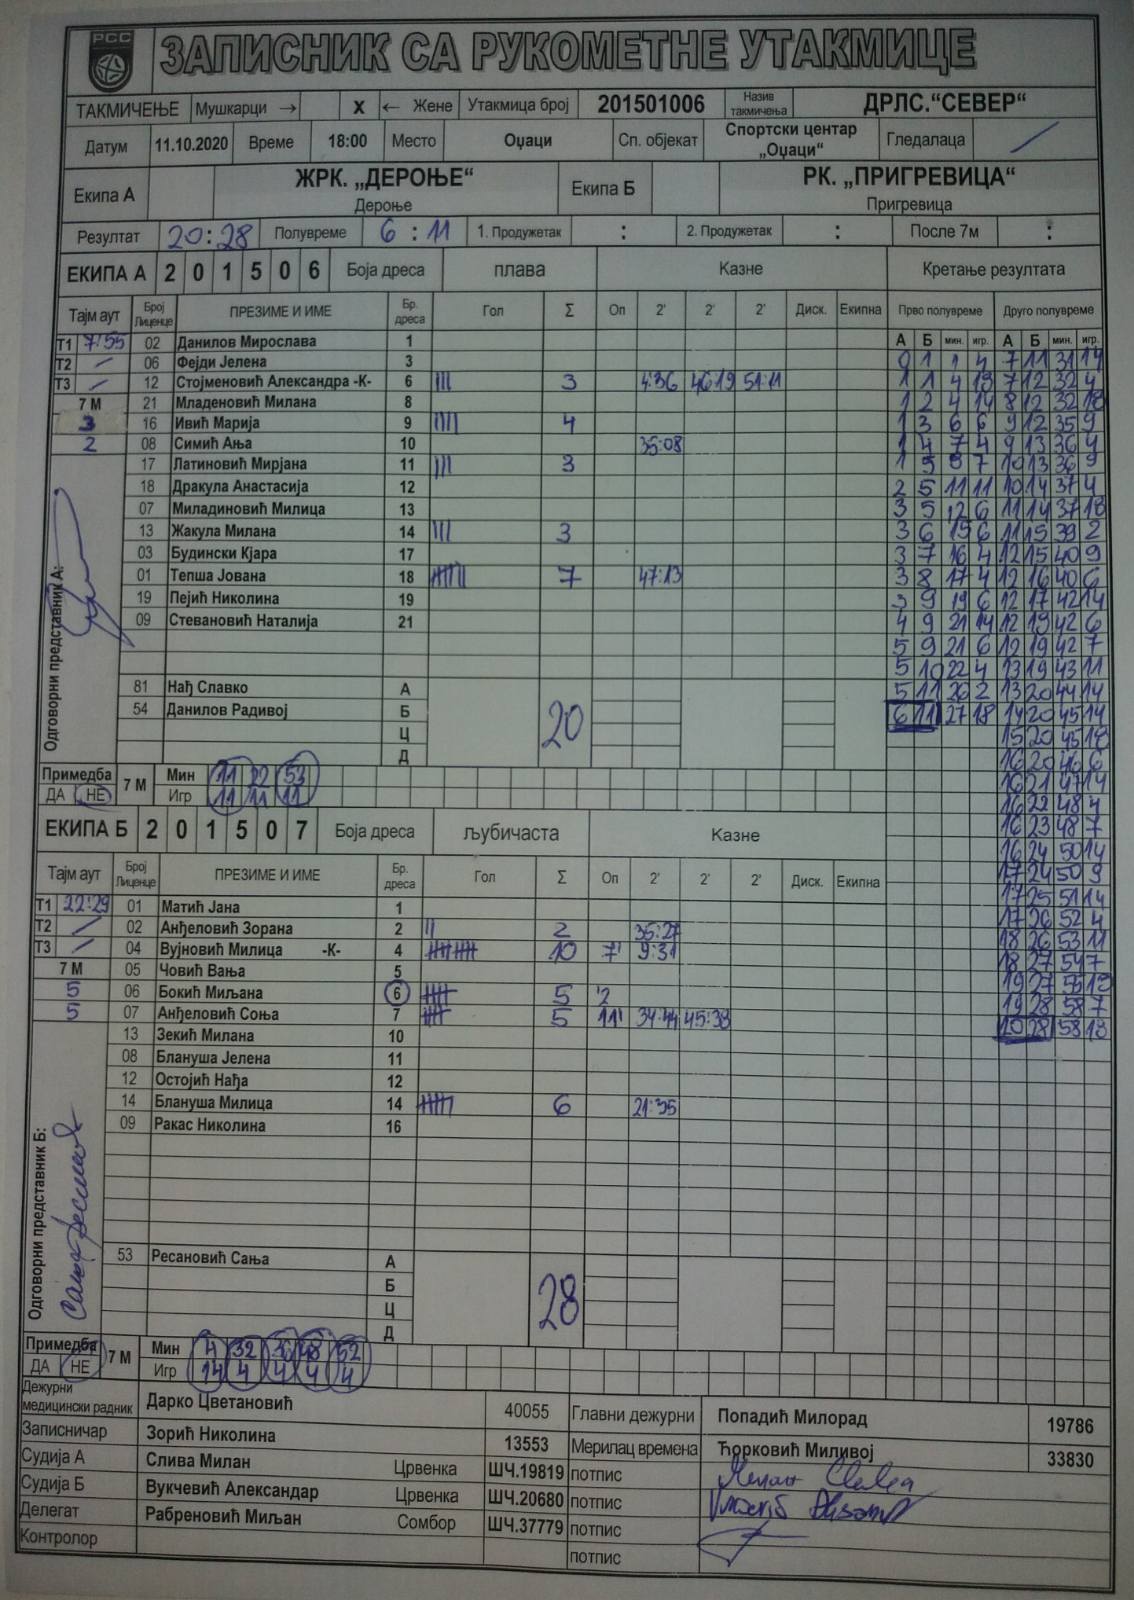 РСС
ЗАПИСНИК СА РУКОМЕТНЕ УТАКМИЦЕ
ТАКМИЧЕЊЕ Мушкарци → X ← Жене Утакмица број 201501006 Назив такмичења ДРЛС.“СЕВЕР“
Датум 11.10.2020 Време 18:00 Место Оџаци Сп. објекат Спортски центар „Оџаци“ Гледалаца /
Екипа А ЖРК. „ДЕРОЊЕ“ Дероње Екипа Б РК. „ПРИГРЕВИЦА“ Пригревица
Резултат 20:28 Полувреме 6 : 11 1. Продужетак : 2. Продужетак : После 7м :
ЕКИПА А 2 0 1 5 0 6 Боја дреса плава Казне Кретање резултата
Тајм аут Број Лиценце ПРЕЗИМЕ И ИМЕ Бр. дреса Гол Σ Оп 2' 2' 2' Диск. Екипна Прво полувреме Друго полувреме
А Б мин. игр. А Б мин. игр.
Т1 7:55 02 Данилов Мирослава 1
0 1 1 4 7 11 31 14
Т2 / 06 Фејди Јелена 3
1 1 4 18 7 12 32 4
Т3 / 12 Стојменовић Александра -К- 6 III 3 4:36 46:19 51:11
1 2 4 14 8 12 32 18
7 М 21 Младеновић Милана 8
1 3 6 6 9 12 35 9
3 16 Ивић Марија 9 IIII 4
1 4 7 4 9 13 36 4
2 08 Симић Ања 10 35:08
1 5 7 10 13 36 9
17 Латиновић Мирјана 11 III 3
2 5 11 11 10 14 37 4
18 Дракула Анастасија 12
3 5 12 6 11 14 37 18
07 Миладиновић Милица 13
3 6 15 6 11 15 39 2
13 Жакула Милана 14 III 3
3 7 16 4 12 15 40 9
03 Будински Кјара 17
3 8 17 4 12 16 40 6
01 Тепша Јована 18 7 47:13
3 9 19 6 12 17 42 14
19 Пејић Николина 19
4 9 21 14 12 19 42 6
09 Стевановић Наталија 21
5 9 21 6 12 19 42 7
5 10 22 4 13 19 43 11
81 Нађ Славко А
5 11 26 2 13 20 44 14
54 Данилов Радивој Б 20
6 11 27 18 14 20 45 14
Ц
15 20 45 18
Д
16 20 46 6
Одговорни представник А:
Примедба ДА НЕ 7 М Мин 11 22 53
16 21 47 14
Игр 11 11 11
16 22 48 4
ЕКИПА Б 2 0 1 5 0 7 Боја дреса љубичаста Казне
16 23 48 7
16 24 50 14
Тајм аут Број Лиценце ПРЕЗИМЕ И ИМЕ Бр. дреса Гол Σ Оп 2' 2' 2' Диск. Екипна
17 24 50 9
Т1 22:29 01 Матић Јана 1
17 25 51 14
Т2 / 02 Анђеловић Зорана 2 II 2 35:27
17 26 52 4
Т3 / 04 Вујновић Милица -К- 4 10 7' 9:31
18 26 53 11
7 М 05 Човић Вања 5
18 27 54 7
5 06 Бокић Миљана 6 5 '2
19 27 55 18
5 07 Анђеловић Соња 7 5 11' 34:44 45:38
19 28 58 7
13 Зекић Милана 10
20 28 58 13
08 Блануша Јелена 11
12 Остојић Нађа 12
14 Блануша Милица 14 6 21:35
09 Ракас Николина 16
53 Ресановић Сања А
Б
Ц 28
Д
Одговорни представник Б:
Примедба ДА НЕ 7 М Мин 4 32 36 48 52
Игр 14 4 4 4 4
Дежурни медицински радник Дарко Цветановић 40055 Главни дежурни Попадић Милорад 19786
Записничар Зорић Николина 13553 Мерилац времена Ћорковић Миливој 33830
Судија А Слива Милан Црвенка ШЧ.19819 потпис
Судија Б Вукчевић Александар Црвенка ШЧ.20680 потпис
Делегат Рабреновић Миљан Сомбор ШЧ.37779 потпис
Контролор потпис